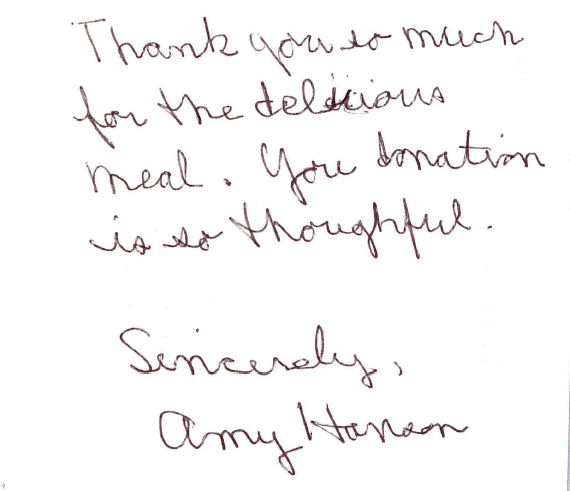 Thank you so much
for the delicious
meal. You donation
is so thoughtful.
Sincerely,
Amy Hanson